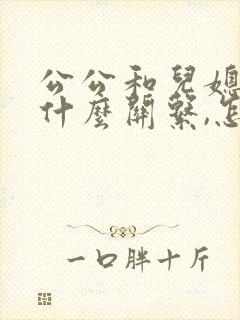 公公和兒媳
什麼關繫,怎
一口胖十斤